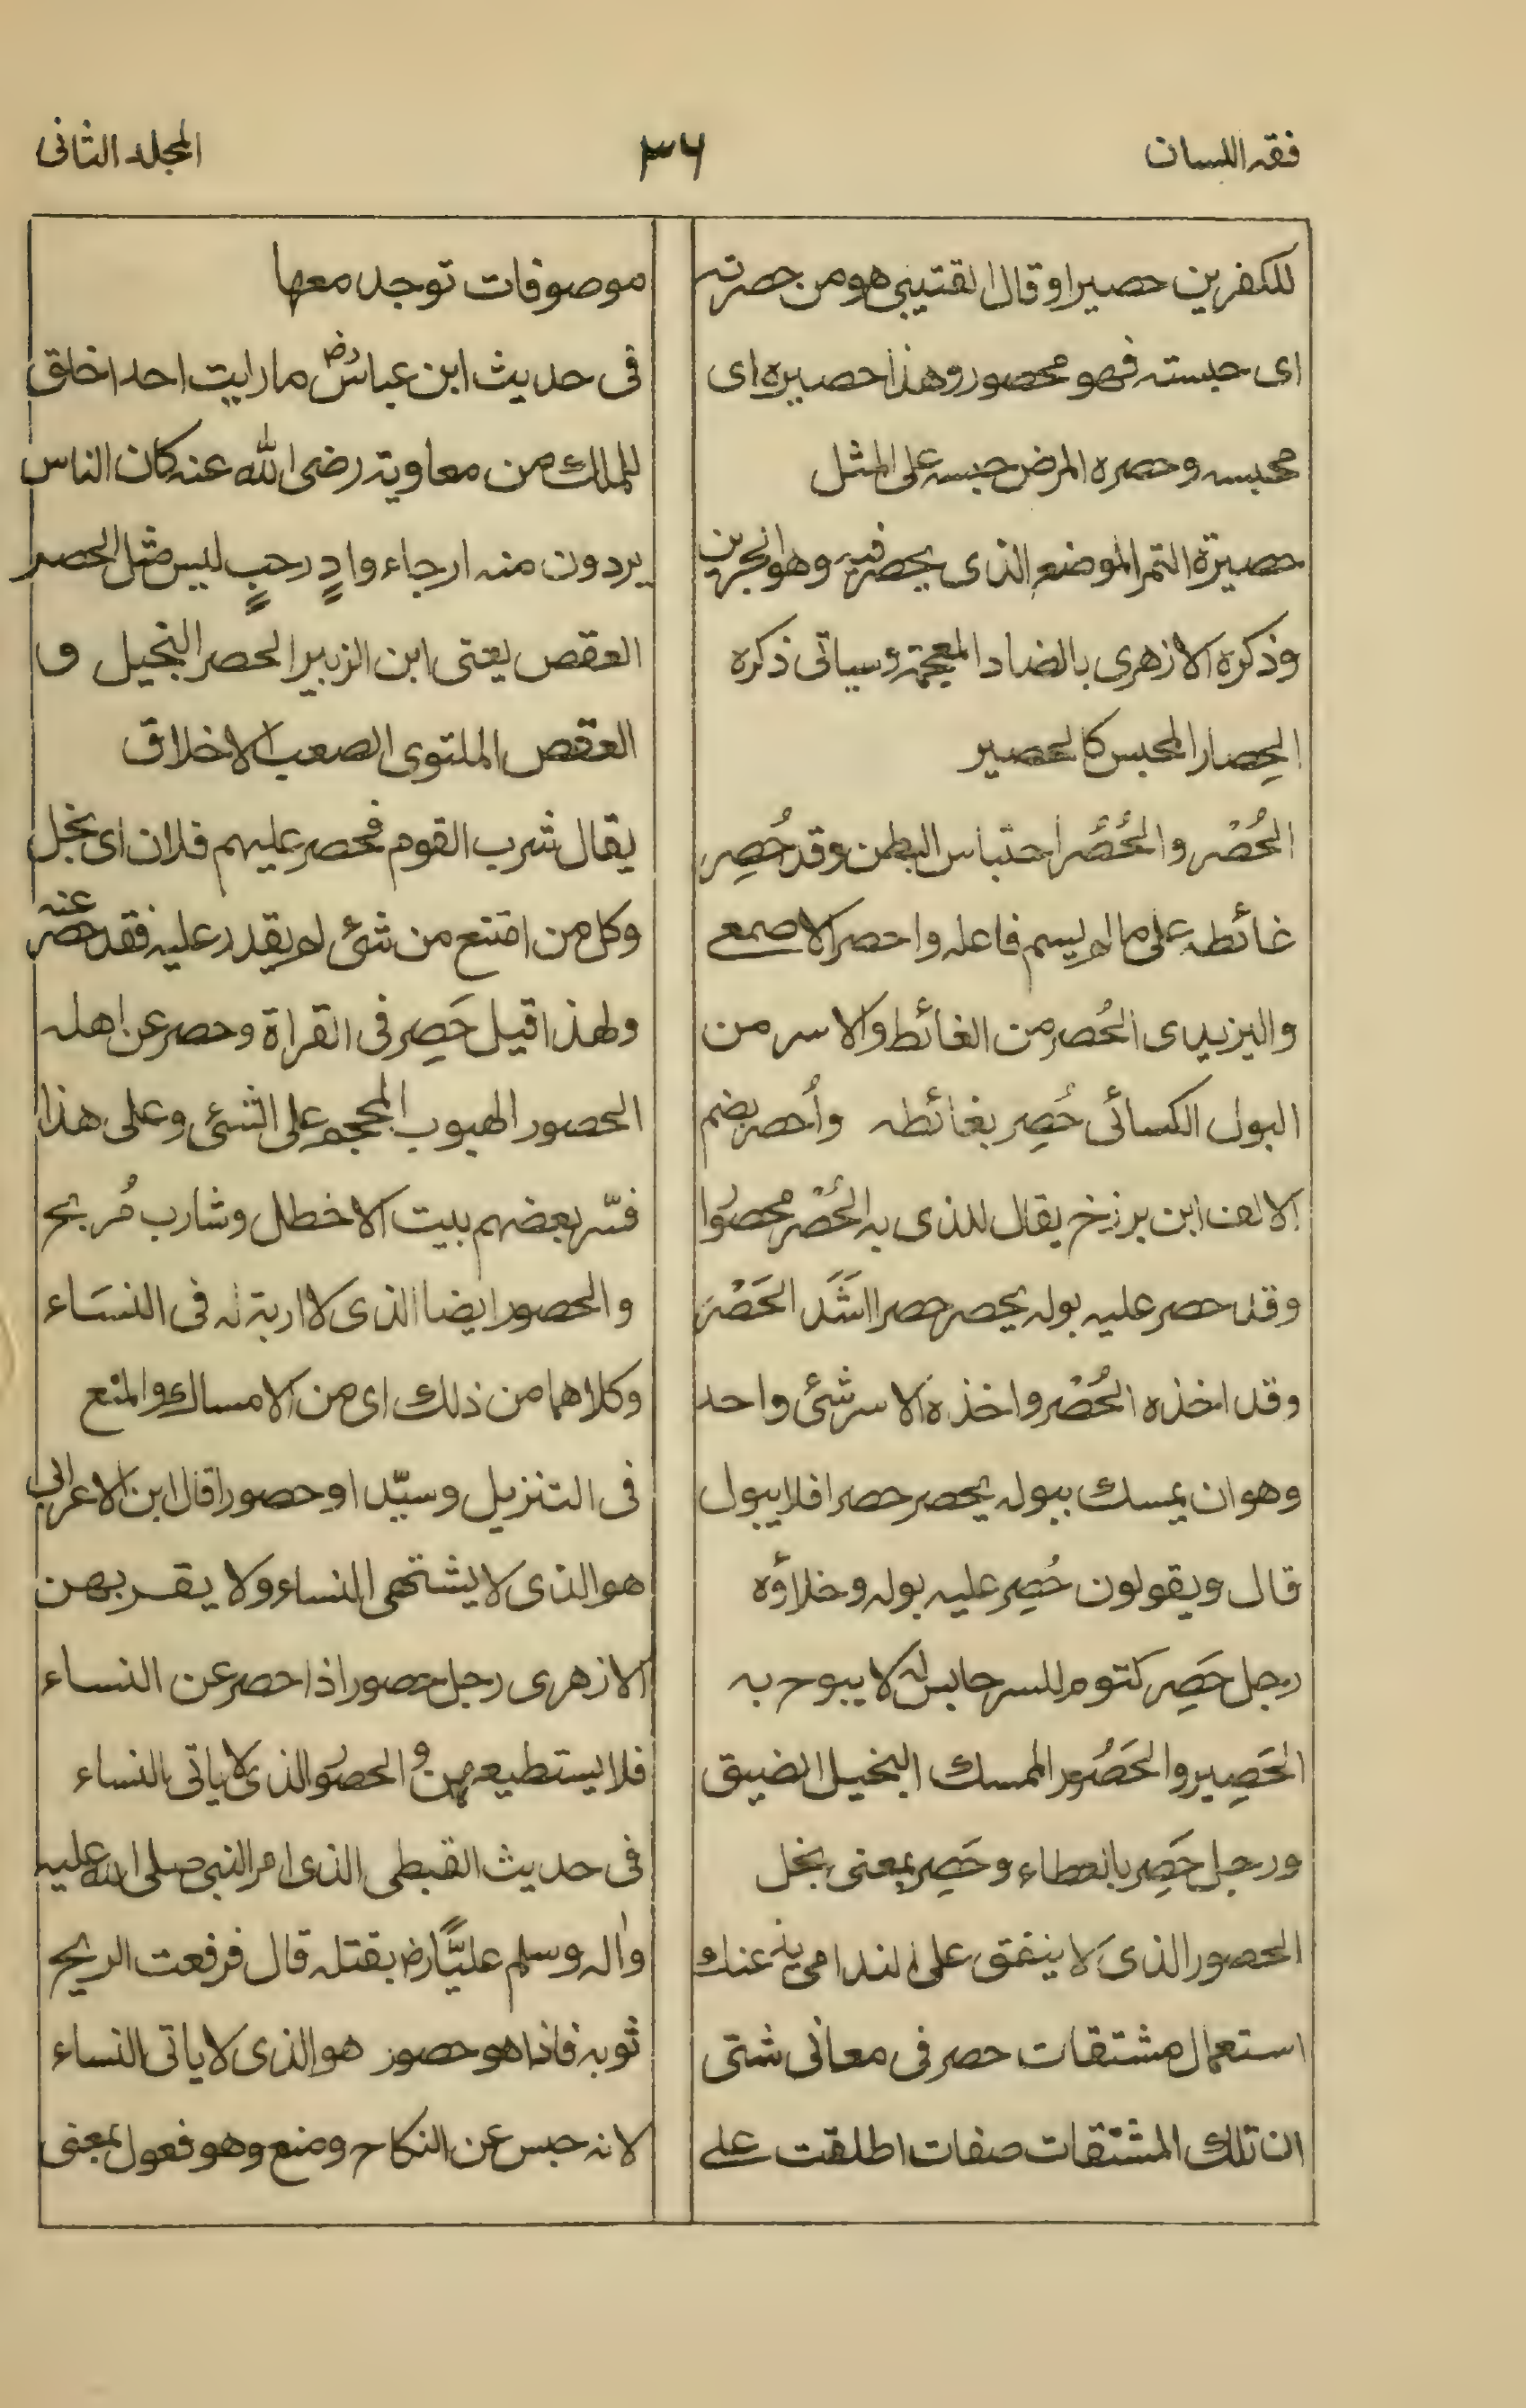 فقہ اللسان
٣٦
المجلد الثانی
للکفرین حصیرا وقال القتیبی هو من حصرتہ
ای حبستہ فهو محصور وهذا حصیرہ ای
محبسہ وحصرہ المرض حبسہ علی المثل
حصیرة التمر الموضع الذی یحصر فیہ وهو الجرین
وذکرہ الازهری بالضاد المعجمة وسیاتی ذکرہ
الحِصار المحبس کالحصیر
الحُصْر والحُصُر احتباس البطن وقد حُصِر
غائطہ علی ما لم یسم فاعلہ واحصر الاصمعے
والیزیدی الحُصر من الغائط والاسر من
البول الکسائی حُصِر بغائطہ وأُحصر بضم
الالف ابن برزخ یقال للذی بہ الحُصْر محصورا
وقد حصر علیہ بولہ یحصر حصرا اشَدَّ الحَصْر
وقد اخذہ الحُصْر واخذہ الاسر شئی واحد
وهو ان یمسك ببولہ یحصر حصرا فلا یبول
قال ویقولون حُصِر علیہ بولہ وخلاؤہ
رجل حَصِر کتوم للسر حابس لہ لا یبوح بہ
الحَصِیر والحَصُور الممسك البخیل الضیق
ورجل حَصِر بالعطاء وحَصِر بمعنی بخل
الحصور الذی لا ینفق علی الندامی عنك
استعمال مشتقات حصر فی معانی شتی
ان تلك المشتقات صفات اطلقت علے
موصوفات توجد معها
فی حدیث ابن عباسؓ ما رایت احد اخلق
للملك من معاویة رضی الله عنہ کان الناس
یردون منہ ارجاء وادٍ رحبٍ لیس مثل الحصر
العقص یعنی ابن الزبیر الحصر البخیل و
العقص الملتوی الصعب الاخلاق
یقال شرب القوم فحصر علیهم فلان ای بخل
وکل من امتنع من شئی لم یقدر علیہ فقد حصر عنہ
ولهذا قیل حَصِر فی القراة وحصر عن اهلہ
الحصور الهیوب المحجم علی الشئی وعلی هذا
فسّر بعضهم بیت الاخطل وشارب مُربح
والحصور ایضا الذی لا اربة لہ فی النسَاء
وکلاهما من ذلك ای من الامساك والمنع
فی التنزیل وسیّدا وحصورا قال ابن الاعرابی
هو الذی لا یشتهی النساء ولا یقربهن
الازهری رجل حصور اذا حصر عن النساء
فلا یستطیعهن والحصور الذی لا یاتی النساء
فی حدیث القبطی الذی امر النبی صلی الله علیہ
والہ وسلم علیًّا رض بقتلہ قال فرفعت الریح
ثوبہ فاذا هو حصور هو الذی لا یاتی النساء
لانہ حبس عن النکاح ومنع وهو فعول بمعنی